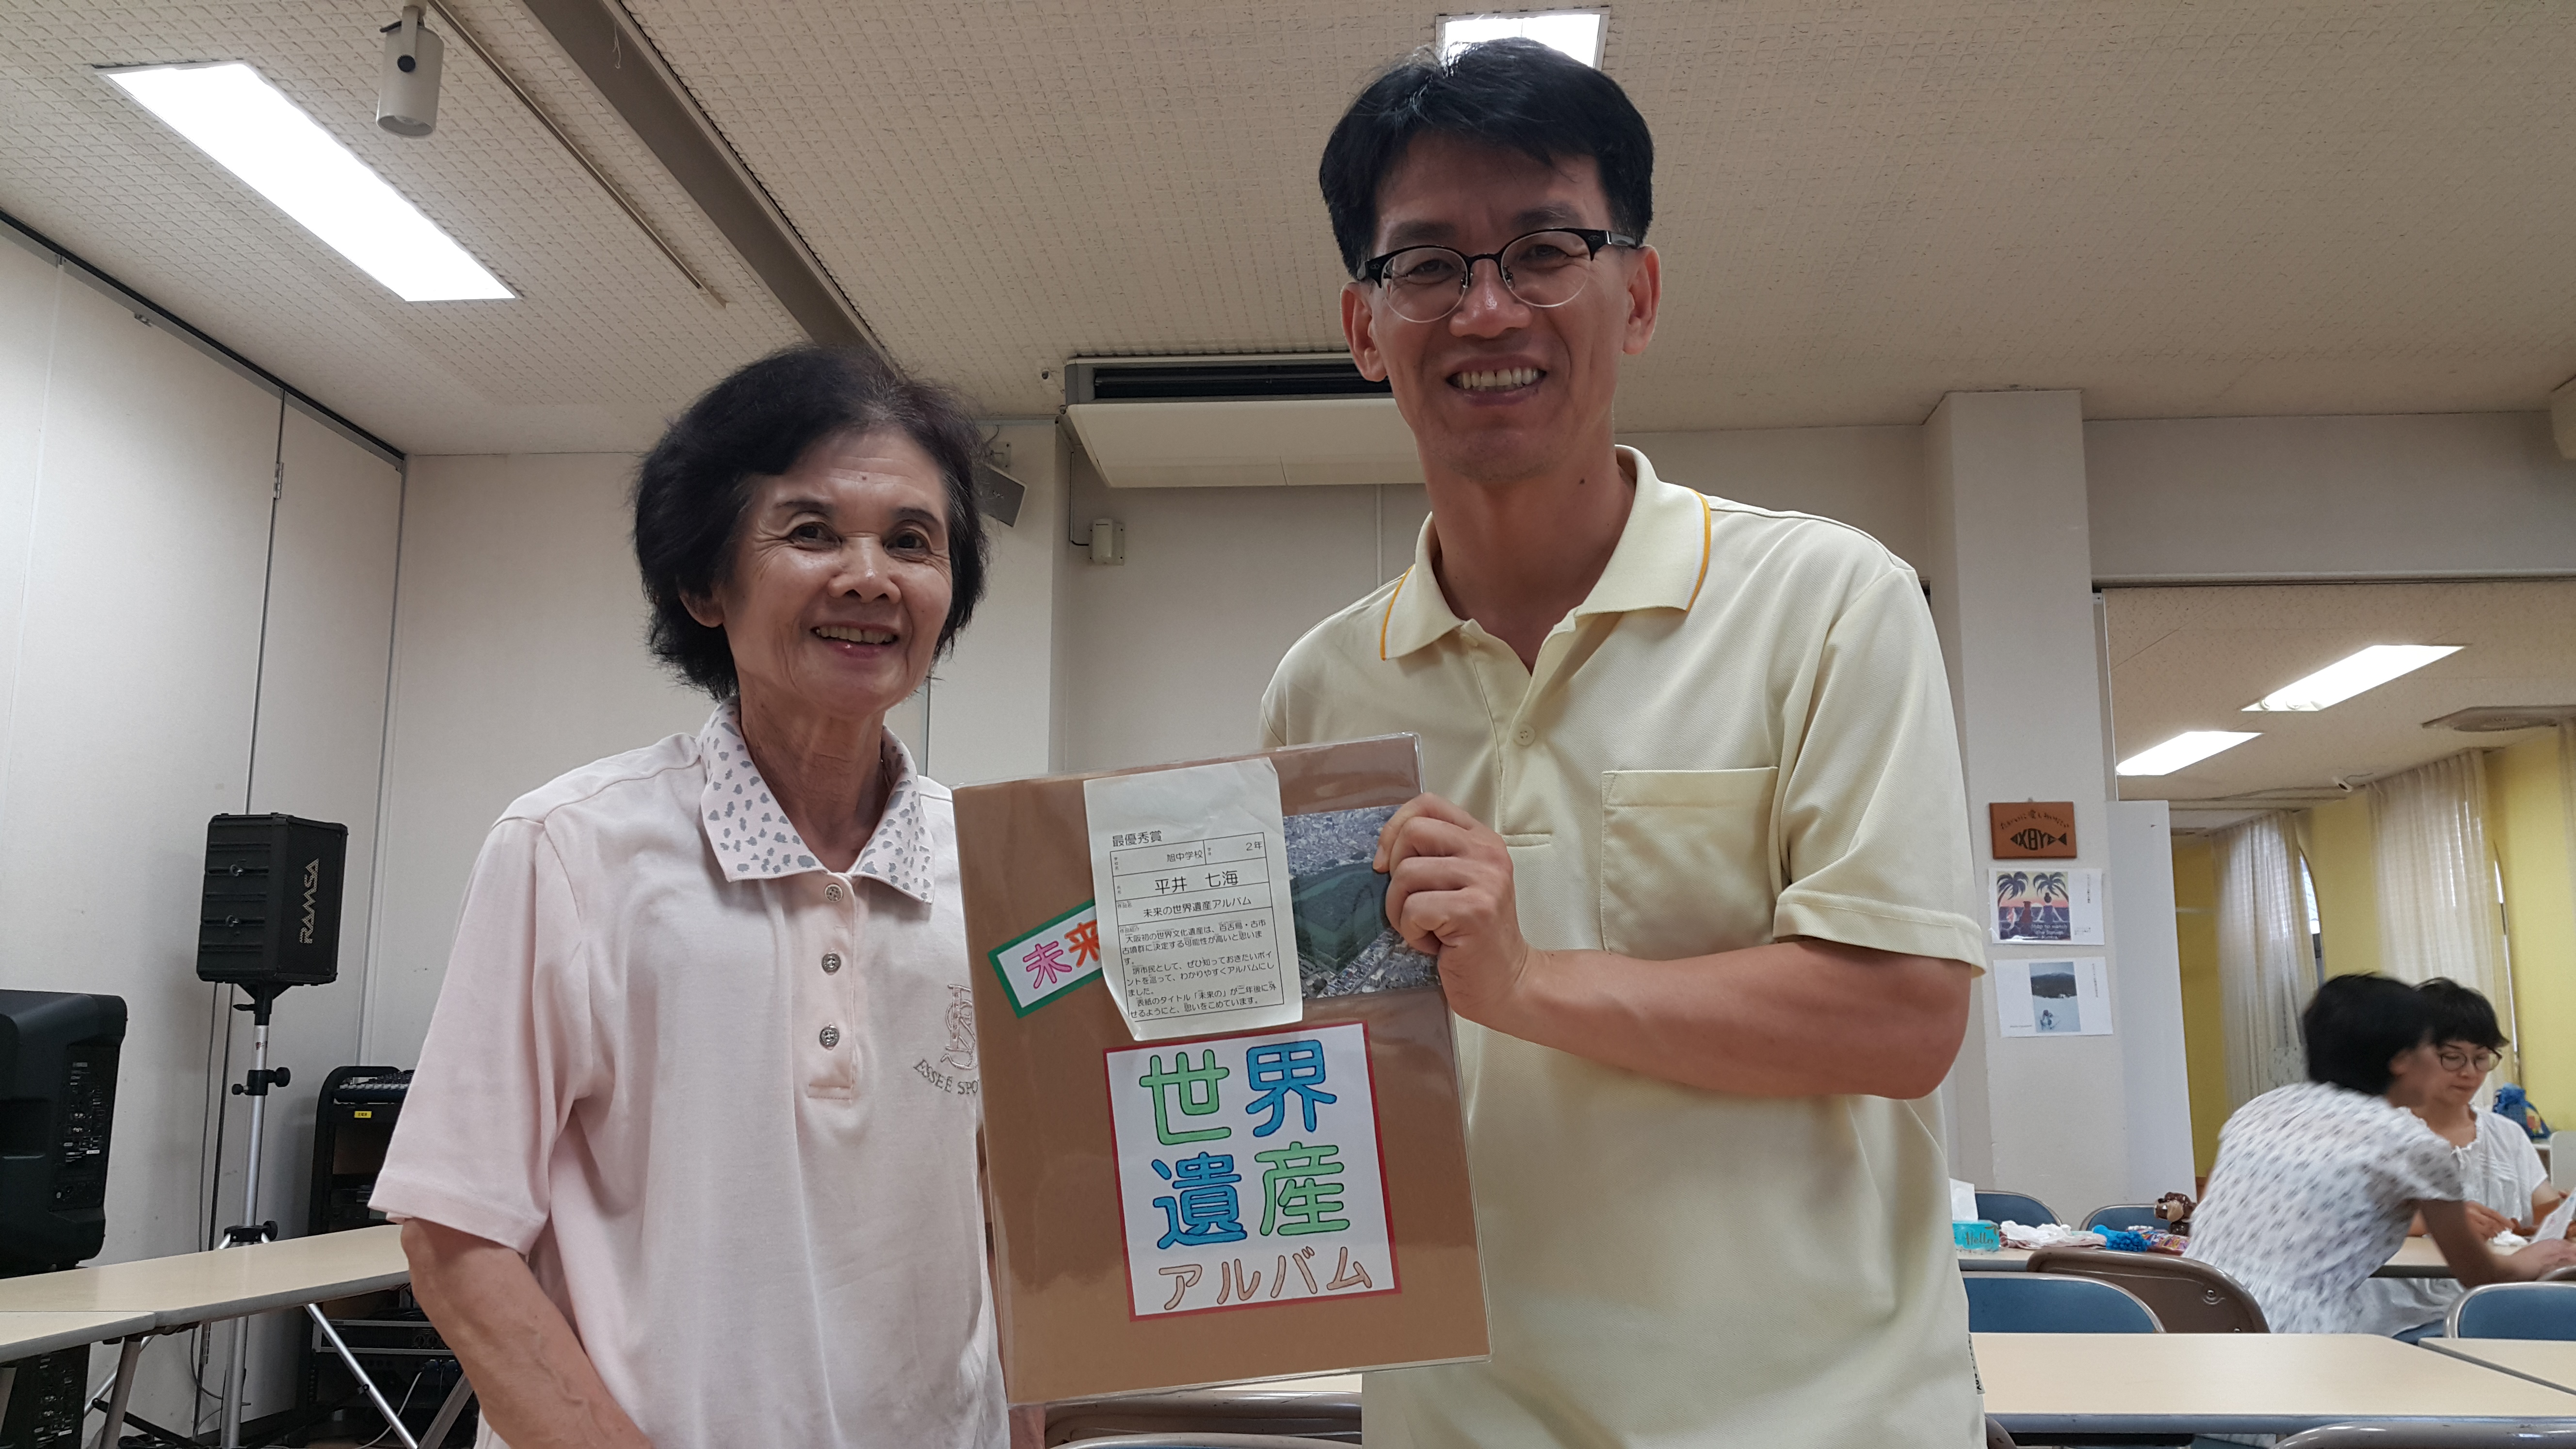 最優秀賞
旭中学校 2年
平井 七海
未来の世界遺産アルバム
大阪初の世界文化遺産は、百舌鳥・古市
古墳群に決定する可能性が高いと思いま
す。
堺市民として、ぜひ知っておきたいポイ
ントを巡って、わかりやすくアルバムにし
ました。
表紙のタイトル「未来の」が二年後に外
せるようにと、思いをこめています。
未来
世界
遺産
アルバム
RAMSA
ESSEE SPO
Hello